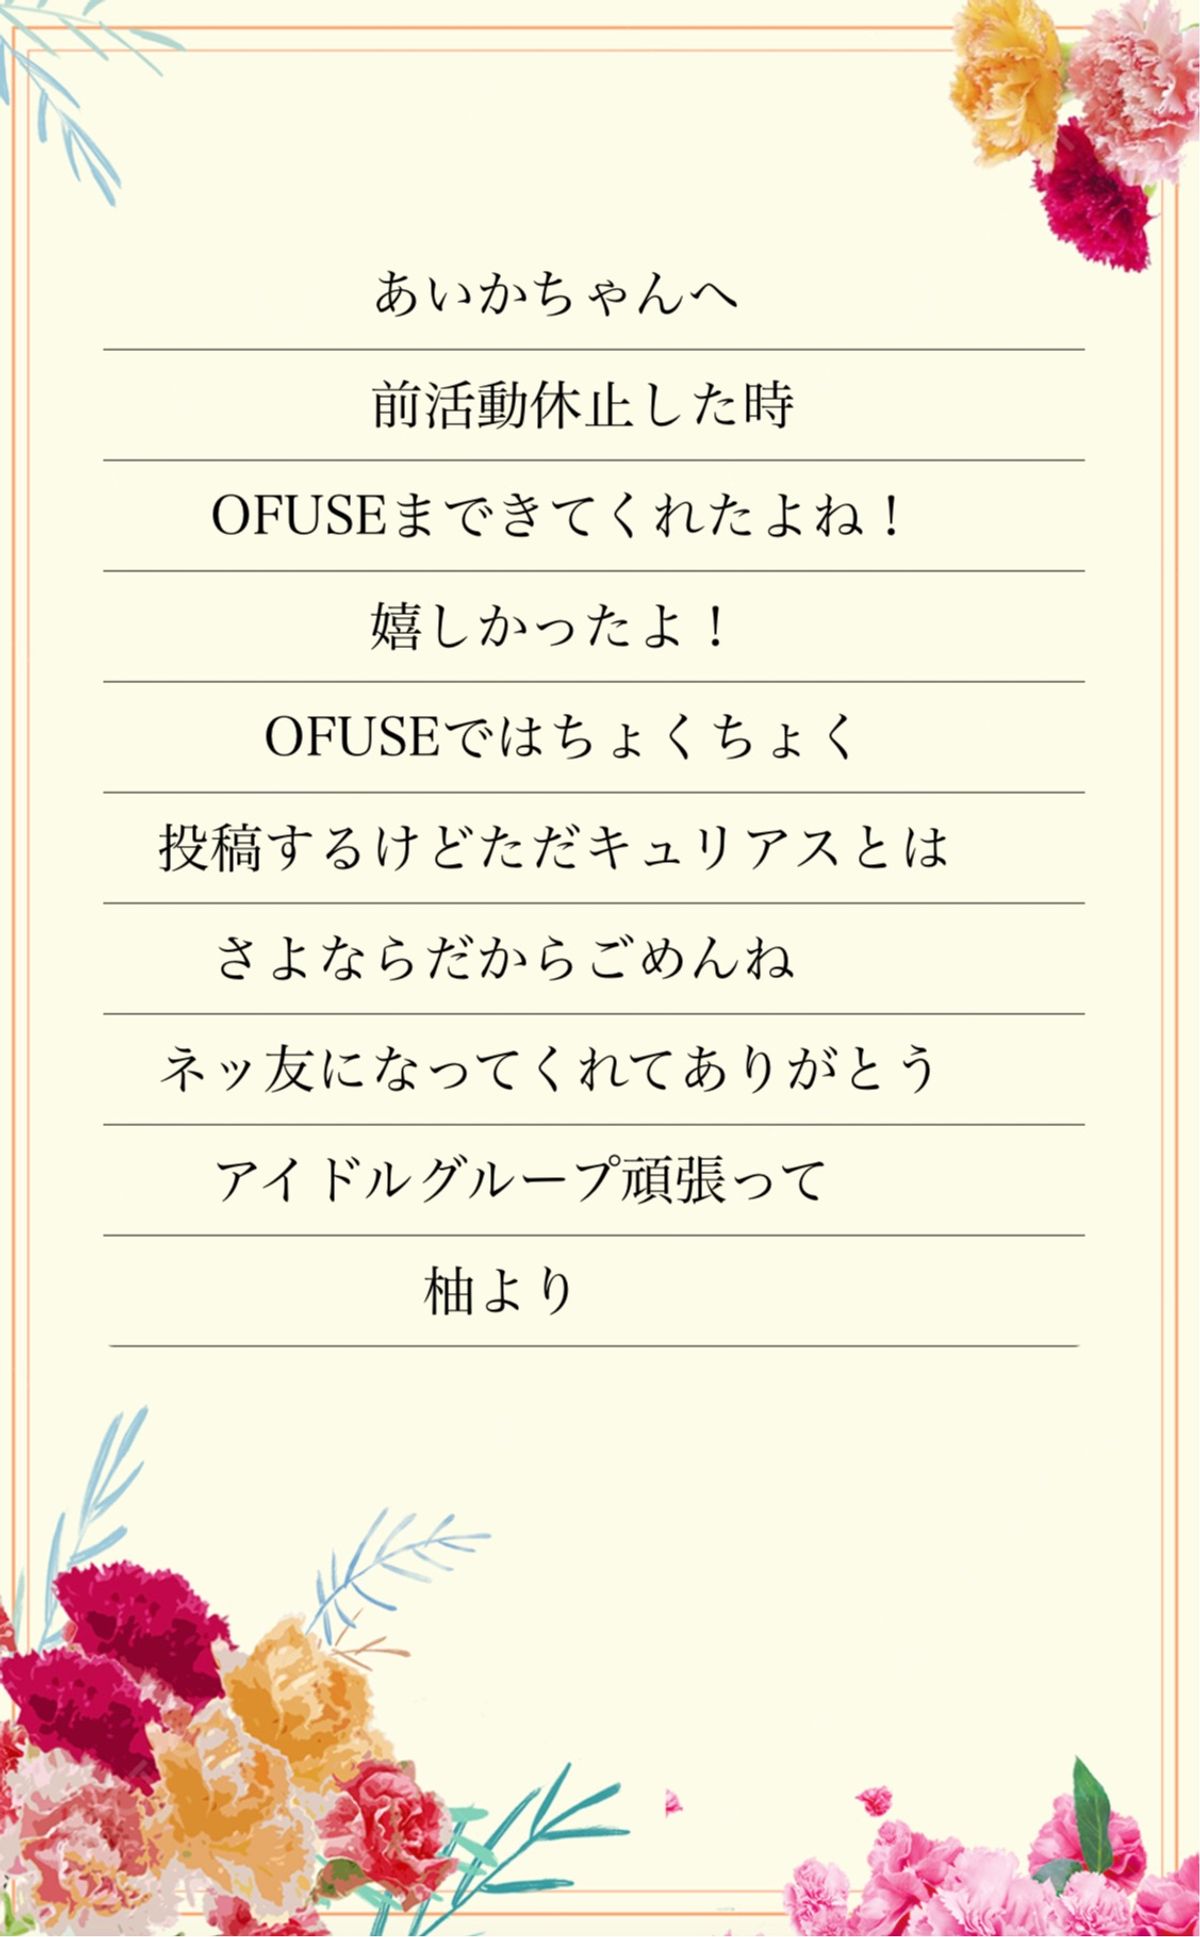 あいかちゃんへ
前活動休止した時
OFUSEまできてくれたよね！
嬉しかったよ！
OFUSEではちょくちょく
投稿するけどただキュリアスとは
さよならだからごめんね
ネッ友になってくれてありがとう
アイドルグループ頑張って
柚より